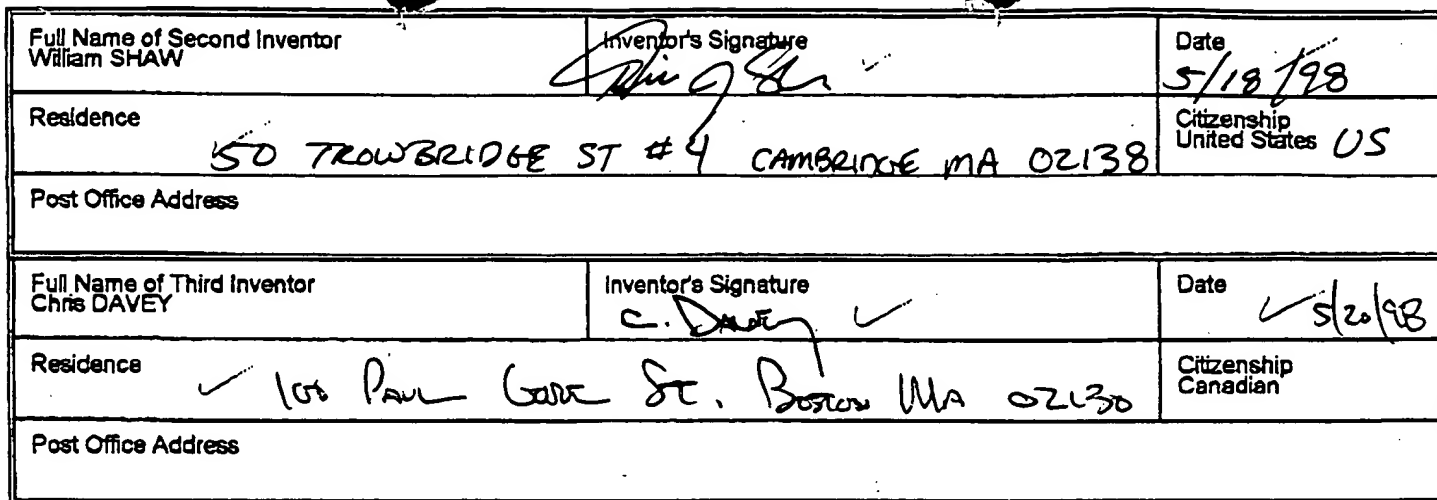 Full Name of Second Inventor
William SHAW
Inventor's Signature
Date
5/18/98
Residence
50 TROWBRIDGE ST #4 CAMBRIDGE MA 02138
Citizenship
United States US
Post Office Address
Full Name of Third Inventor
Chris DAVEY
Inventor's Signature
C. DAVEY
Date
5/20/98
Residence
PAUL GORE ST. BOSTON MA 02130
Citizenship
Canadian
Post Office Address